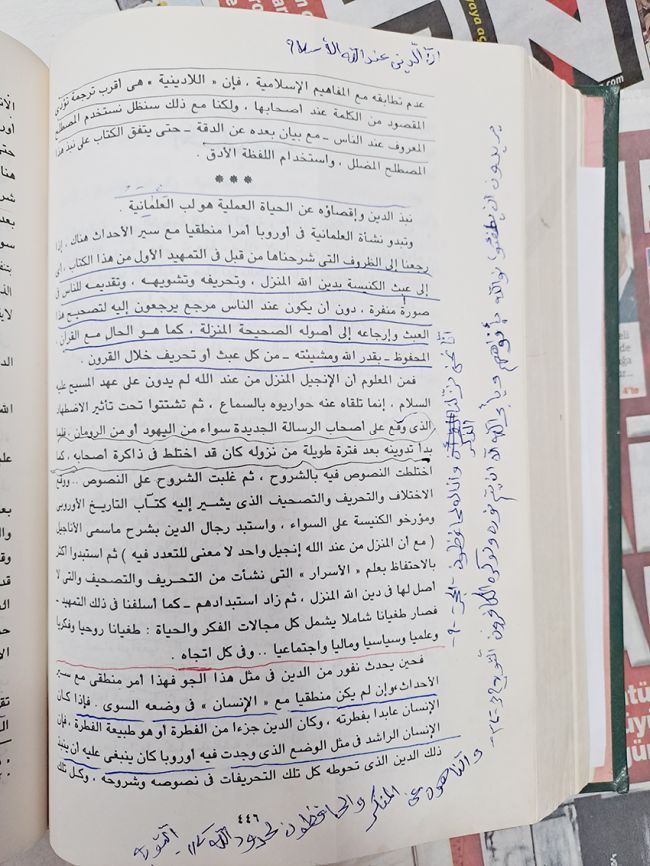 إن الدين عند الله الإسلام
عدم تطابقه مع المفاهيم الإسلامية ، فإن « اللادينية » هى أقرب ترجمة تؤدى
المقصود من الكلمة عند أصحابها ، ولكنا مع ذلك سنظل نستخدم المصطلح
المعروف عند الناس ــ مع بيان بعده عن الدقة ــ حتى يتفق الكتاب على نبذ هذا
المصطلح المضلل ، واستخدام اللفظة الأدق .
* * *
نبذ الدين وإقصاؤه عن الحياة العملية هو لب العلمانية .
وتبدو نشأة العلمانية فى أوروبا أمرا منطقيا مع سير الأحداث هناك ، إذا
رجعنا إلى الظروف التى شرحناها من قبل فى التمهيد الأول من هذا الكتاب ، أى
إلى عبث الكنيسة بدين الله المنزل ، وتحريفه وتشويهه ، وتقديمه للناس فى
صورة منفرة ، دون أن يكون عند الناس مرجع يرجعون إليه لتصحيح هذا
العبث وإرجاعه إلى أصوله الصحيحة المنزلة ، كما هو الحال مع القرآن ،
المحفوظ ــ بقدر الله ومشيئته ــ من كل عبث أو تحريف خلال القرون .
فمن المعلوم أن الإنجيل المنزل من عند الله لم يدون على عهد المسيح عليه
السلام ، إنما تلقاه عنه حواريوه بالسماع ، ثم تشتتوا تحت تأثير الاضطهاد
الذى وقع على أصحاب الرسالة الجديدة سواء من اليهود أو من الرومان ، فلما
بدأ تدوينه بعد فترة طويلة من نزوله كان قد اختلط فى ذاكرة أصحابه ، كما
اختلطت النصوص فيه بالشروح ، ثم غلبت الشروح على النصوص .. ووقع
الاختلاف والتحريف والتصحيف الذى يشير إليه كتاب التاريخ الأوروبى
ومؤرخو الكنيسة على السواء ، واستبد رجال الدين بشرح ماسمى الأناجيل
( مع أن المنزل من عند الله إنجيل واحد لا معنى للتعدد فيه ) ثم استبدوا أكثر
بالاحتفاظ بعلم « الأسرار » التى نشأت من التحريف والتصحيف والتى لا
أصل لها فى دين الله المنزل ، ثم زاد استبدادهم ــ كما أسلفنا فى ذلك التمهيد ــ
فصار طغيانا شاملا يشمل كل مجالات الفكر والحياة : طغيانا روحيا وفكريا
وعلميا وسياسيا وماليا واجتماعيا .. وفى كل اتجاه .
فحين يحدث نفور من الدين فى مثل هذا الجو فهذا أمر منطقى مع سير
الأحداث ، وإن لم يكن منطقيا مع « الإنسان » فى وضعه السوى . فإذا كان
الإنسان عابدا بفطرته ، وكان الدين جزءا من الفطرة أو هو طبيعة الفطرة ، فإن
الإنسان الراشد فى مثل الوضع الذى وجدت فيه أوروبا كان ينبغى عليه أن ينبذ
ذلك الدين الذى تحوطه كل تلك التحريفات فى نصوصه وشروحه ، وكل تلك
٤٤٦
والناهون عن المنكر والحافظون لحدود الله
إنا نحن نزلنا الذكر وإنا له لحافظون
يريدون أن يطفئوا نور الله بأفواههم ويأبى الله إلا أن يتم نوره ولو كره الكافرون